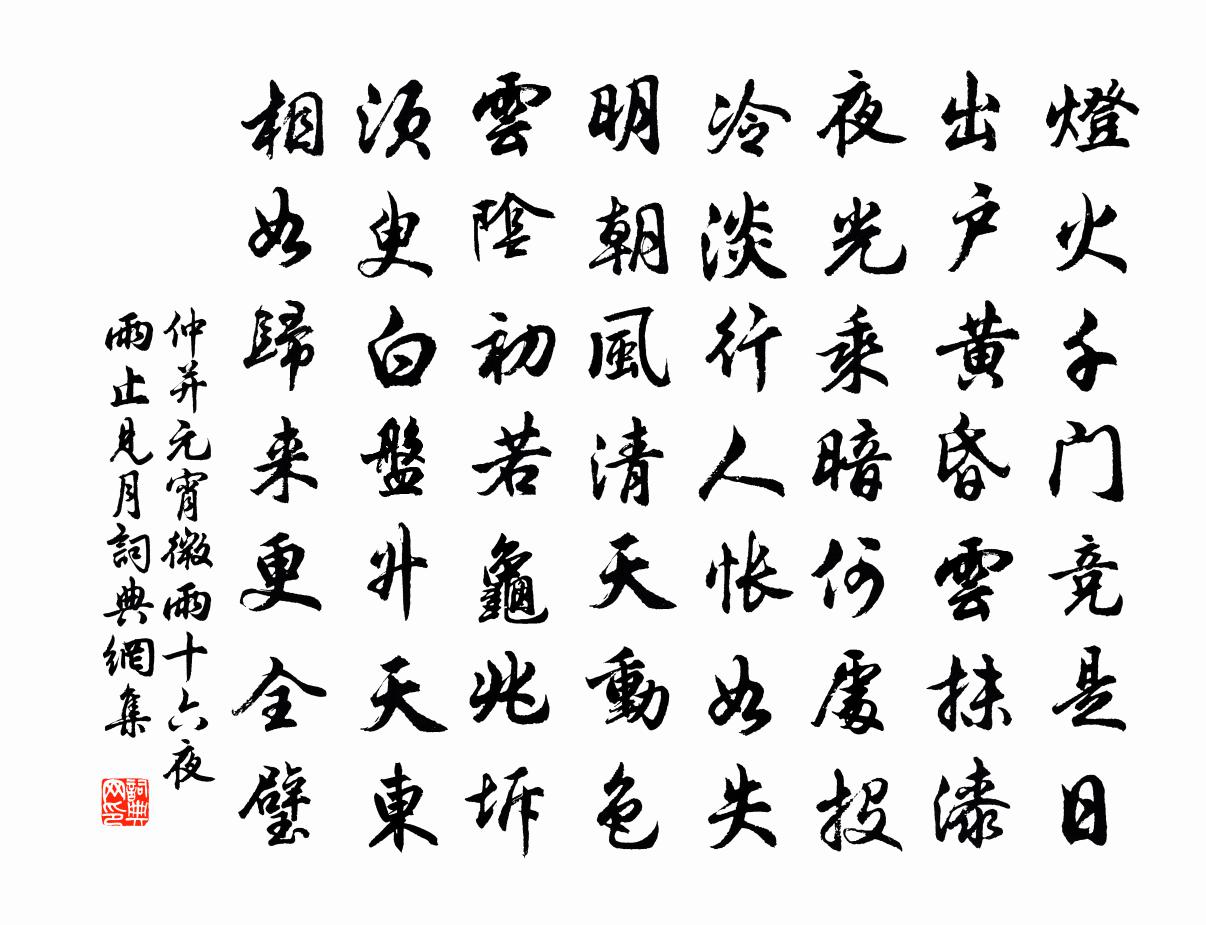 燈火千门竞是日
出户黄昏雲抹漆
夜光乘暗何處投
冷淡行人怅如失
明朝風清天動色
雲陰初若龜兆坼
须臾白盤升天東
相如歸来更全璧
仲并元宵微雨十六夜
雨止見月詞典網集
詞典
网印